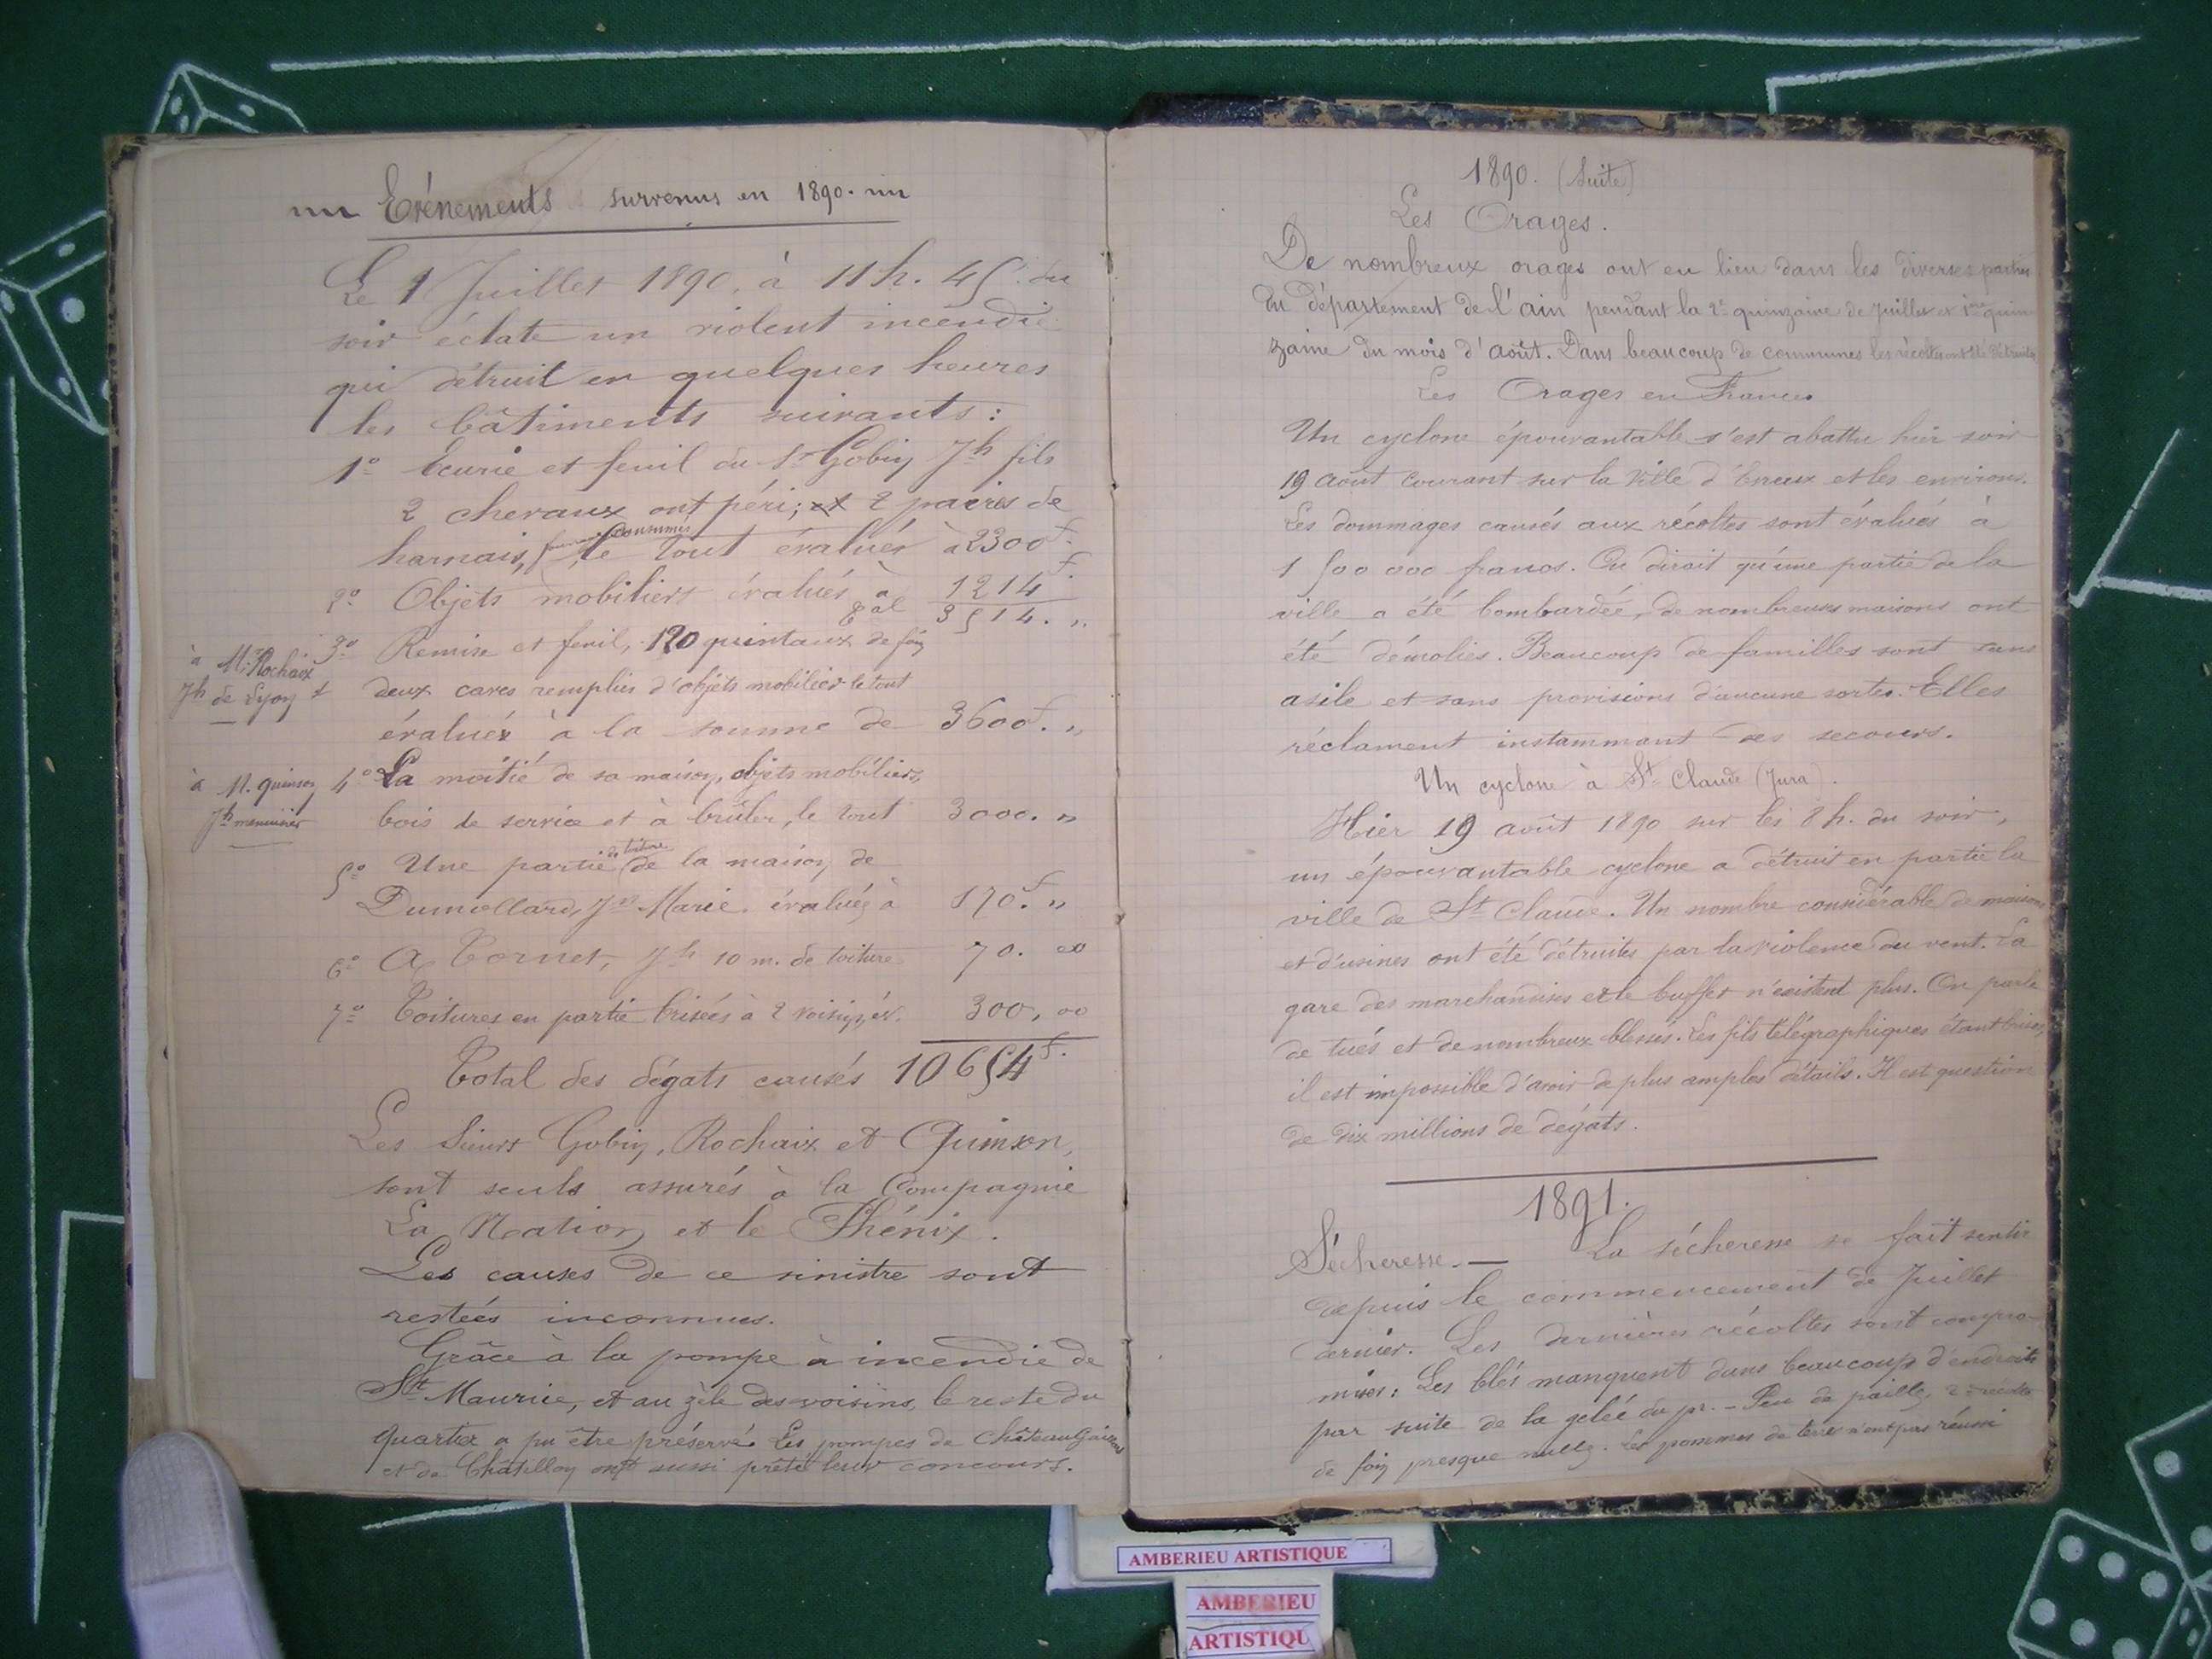 Evénements survenus en 1890.
Le 1 Juillet 1890, à 11 h. 45 du
soir éclate un violent incendie
qui détruit en quelques heures
les bâtiments suivants :
1º Ecurie et fenil du Sr Gobin Jh fils
2 chevaux ont péri; et 2 paires de
consumés
harnais, le tout évalués à 2300f.
2º Objets mobiliers évalués à 1214f.
Egal 3514. "
à Mr Rochaix 3º Remise et fenil, 120 quintaux de foin
Jh de Lyon deux caves remplies d'objets mobilier le tout
évalués à la somme de 3600f. "
à M. quinson 4º La moitié de sa maison, objets mobiliers,
Jh menuisier bois de service et à brûler, le tout 3000. "
de toiture
5º Une partie de la maison de
Dumollard, Jn Marie évaluée à 170f. "
6º A Cornet, Jh 10 m. de toiture 70. 00
7º Toitures en partie brisées à 2 voisins, év. 300, 00
Total des dégats causés 10654f.
Les Sieurs Gobin, Rochaix et Quinson,
sont seuls assurés à la Compagnie
La Nation et le Phénix.
Les causes de ce sinistre sont
restées inconnues.
Grâce à la pompe à incendie de
St Maurice, et au zèle des voisins, le reste du
quartier a pu être préservé. Les pompes de Château Gaillard
et de Châtillon ont aussi prêté leur concours.
1890. (Suite)
Les Orages.
De nombreux orages ont eu lieu dans les diverses parties
du département de l'ain pendant la 2e quinzaine de Juillet et 1ère quin
zaine du mois d'août. Dans beaucoup de communes les récoltes ont été détruites
Les Orages en France
Un cyclone épouvantable s'est abattu hier soir
19 août courant sur la ville d'Evreux et les environs.
Les dommages causés aux récoltes sont évalués à
1 500 000 francs. On dirait qu'une partie de la
ville a été bombardée, de nombreuses maisons ont
été démolies. Beaucoup de familles sont sans
asile et sans provisions d'aucune sortes. Elles
réclament instammant des secours.
Un cyclone à St Claude (Jura).
Hier 19 août 1890 sur les 8 h. du soir,
un épouvantable cyclone a détruit en partie la
ville de St Claude. Un nombre considérable de maisons
et d'usines ont été détruites par la violence du vent. La
gare des marchandises et le buffet n'existent plus. On parle
de tués et de nombreux blessés. Les fils télégraphiques étant brisés,
il est impossible d'avoir de plus amples détails. Il est question
de dix millions de dégâts.
1891.
Sécheresse. — La sécheresse se fait sentir
depuis le commencement de Juillet
dernier. Les dernières récoltes sont compro-
mises. Les blés manquent dans beaucoup d'endroits
par suite de la gelée du pr. - Peu de paille, 2e récolte
de foin presque nulle. Les pommes de terre n'ont pas réussi
AMBERIEU ARTISTIQUE
AMBERIEU
ARTISTIQU